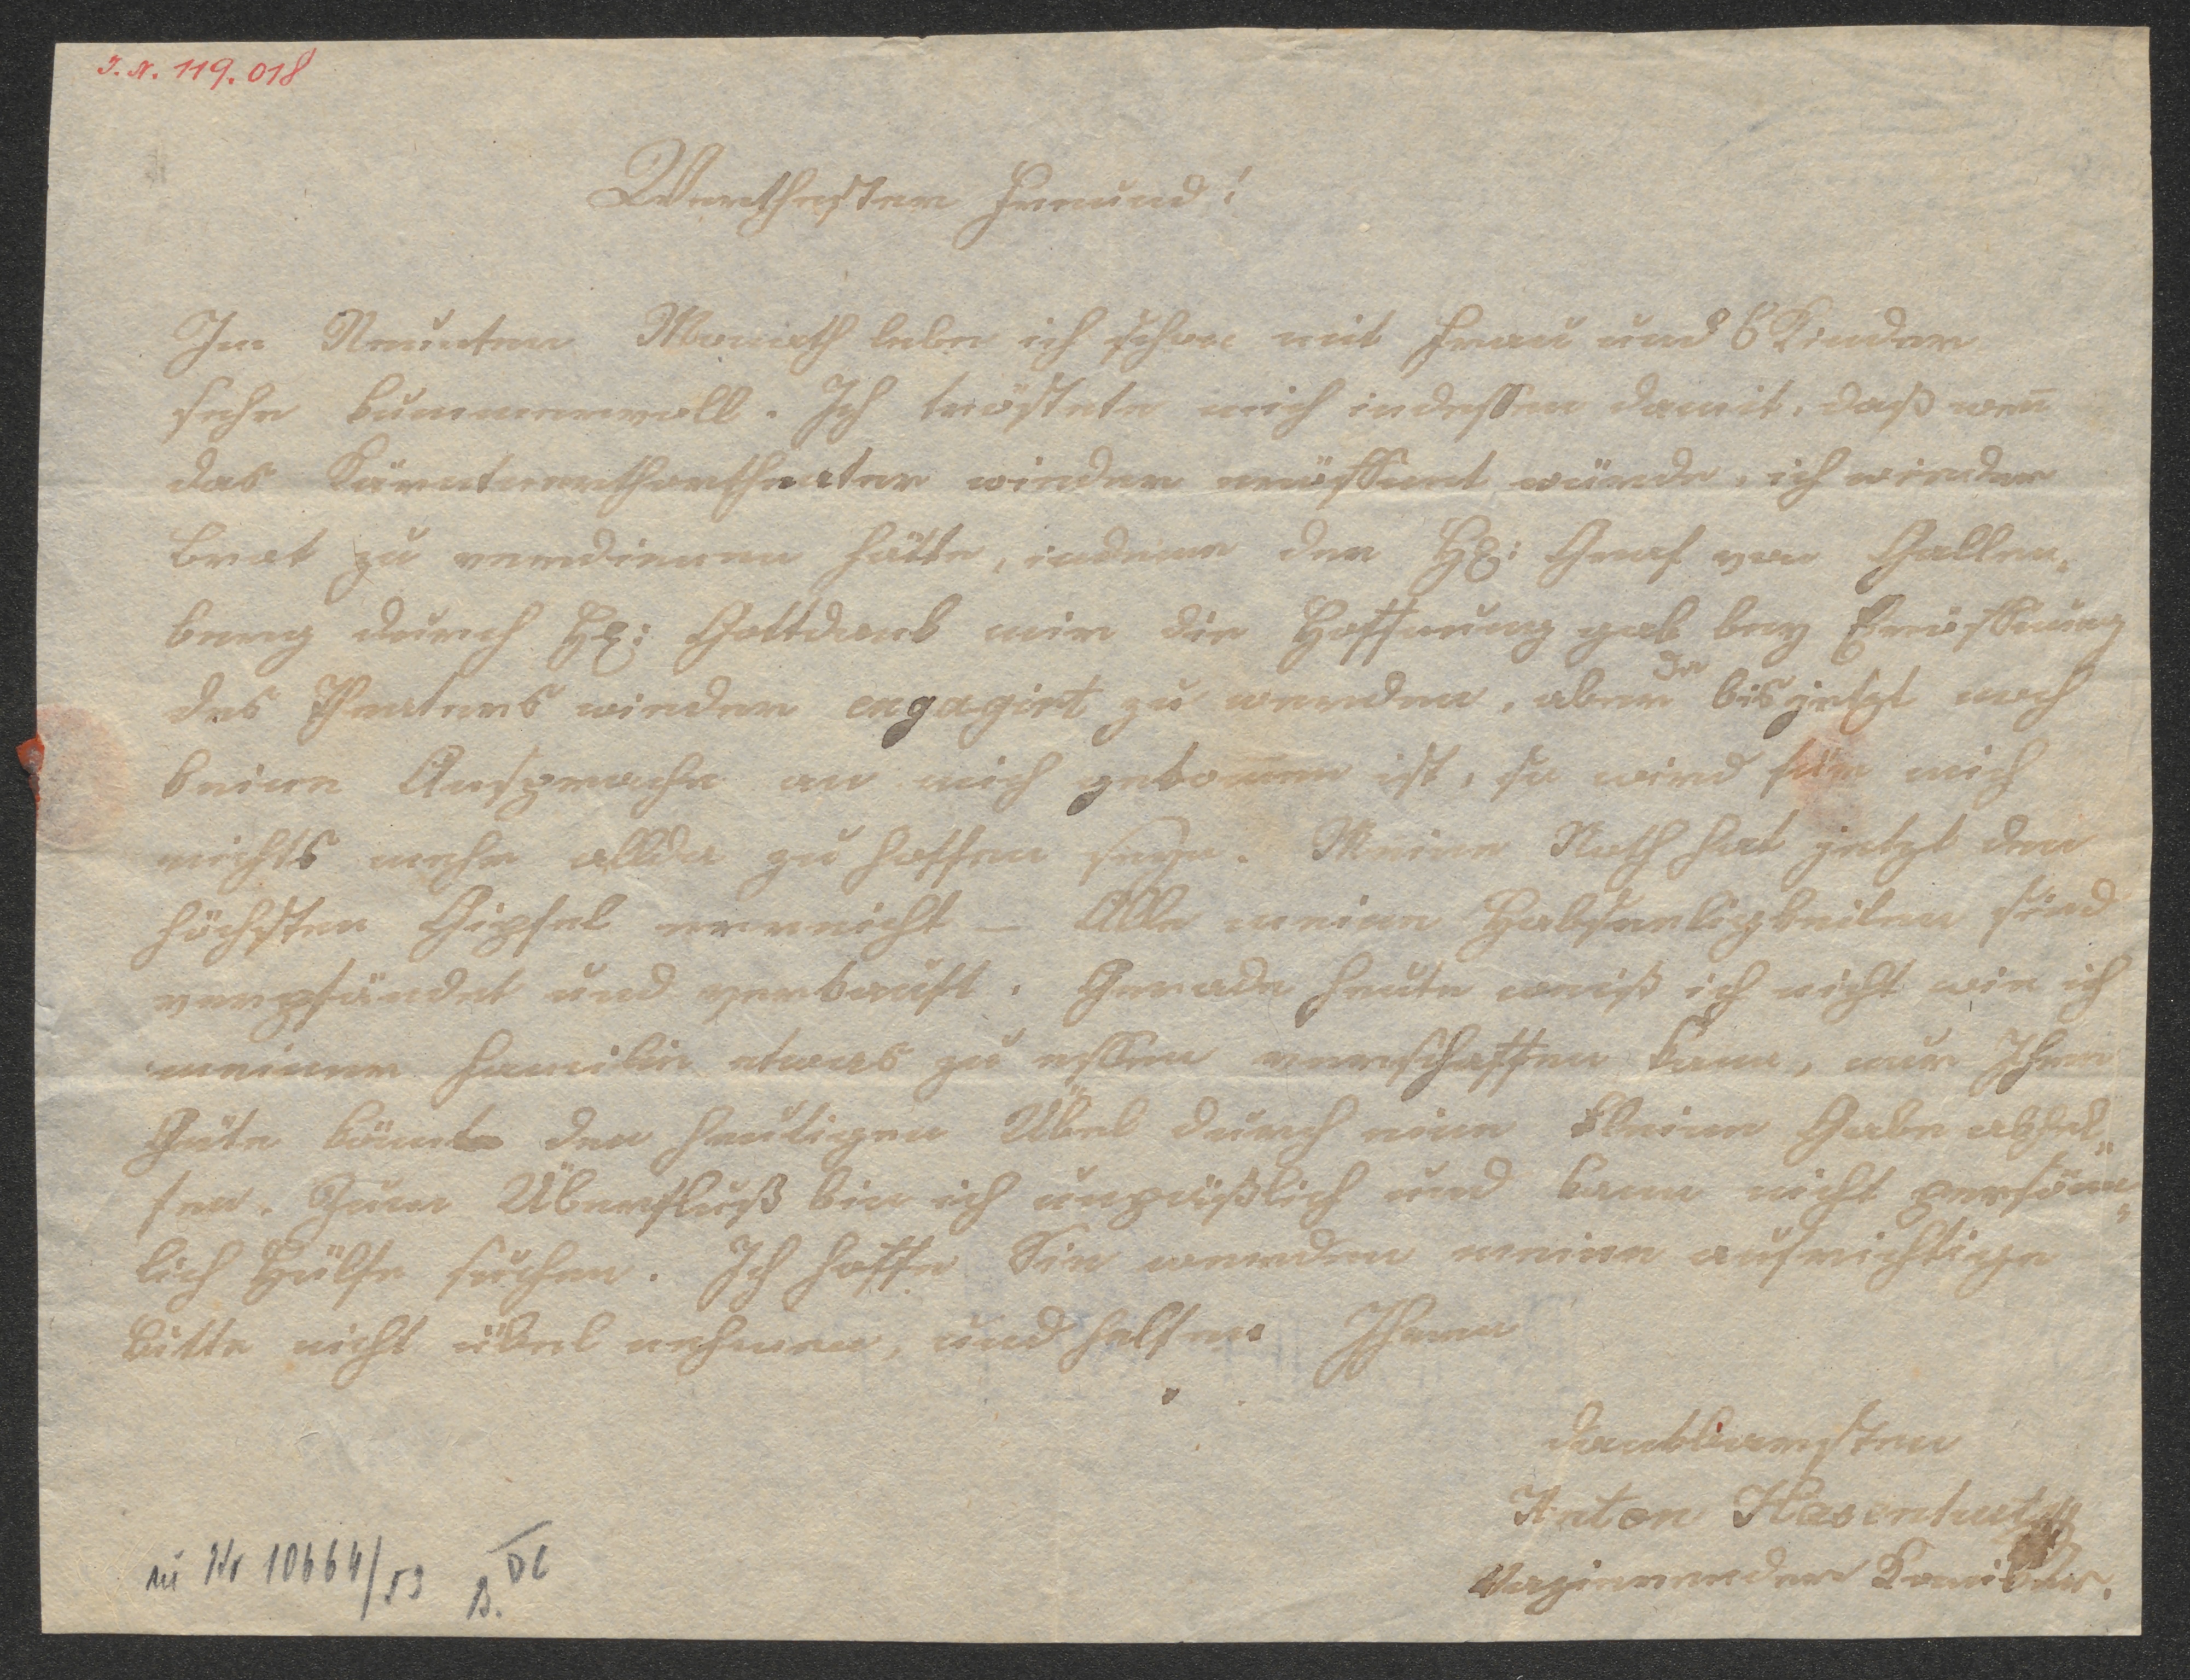 I. N. 119.018
Werthester Freund!
Im Neunten Monath lebe ich schon mit Frau und 6 Kinder
sehr kummervoll. Ich tröstete mich indessen damit, daß wen̅
das Kärntnerthortheater wieder eröffnet würde, ich wieder
Brot zu verdienen hätte, indeme der Hr: Graf von Gallen„
berg durch Hr: Gottdank mir die Hoffnung gab bey Eröffnung
des Theaters wieder engagirt zu werden, aber da bis jetzt noch
keine Ansprache an mich gekom̅en ist, so wird für mich
nichts mehr allda zu hoffen seyn. Meine Noth hat jetzt den
höchsten Gipfel erreicht – Alle meine Habseeligkeiten sind
verpfändet und verkauft. Gerade heute weiß ich nicht wie ich
meiner Familie etwas zu essen verschaffen kann, nur Ihre
Güte könnte den heutigen Übel durch eine kleine Gabe abhel„
fen. Zum Überfluß bin ich unpäßlich und kann nicht persön„
lich Hülfe suchen. Ich hoffe Sie werden meine aufrichtige
Bitte nicht übel nehmen, und helfen Ihrem
dankbarsten
Anton Hasenhut
Vazierender Komiker.
zu Nr 10664/53